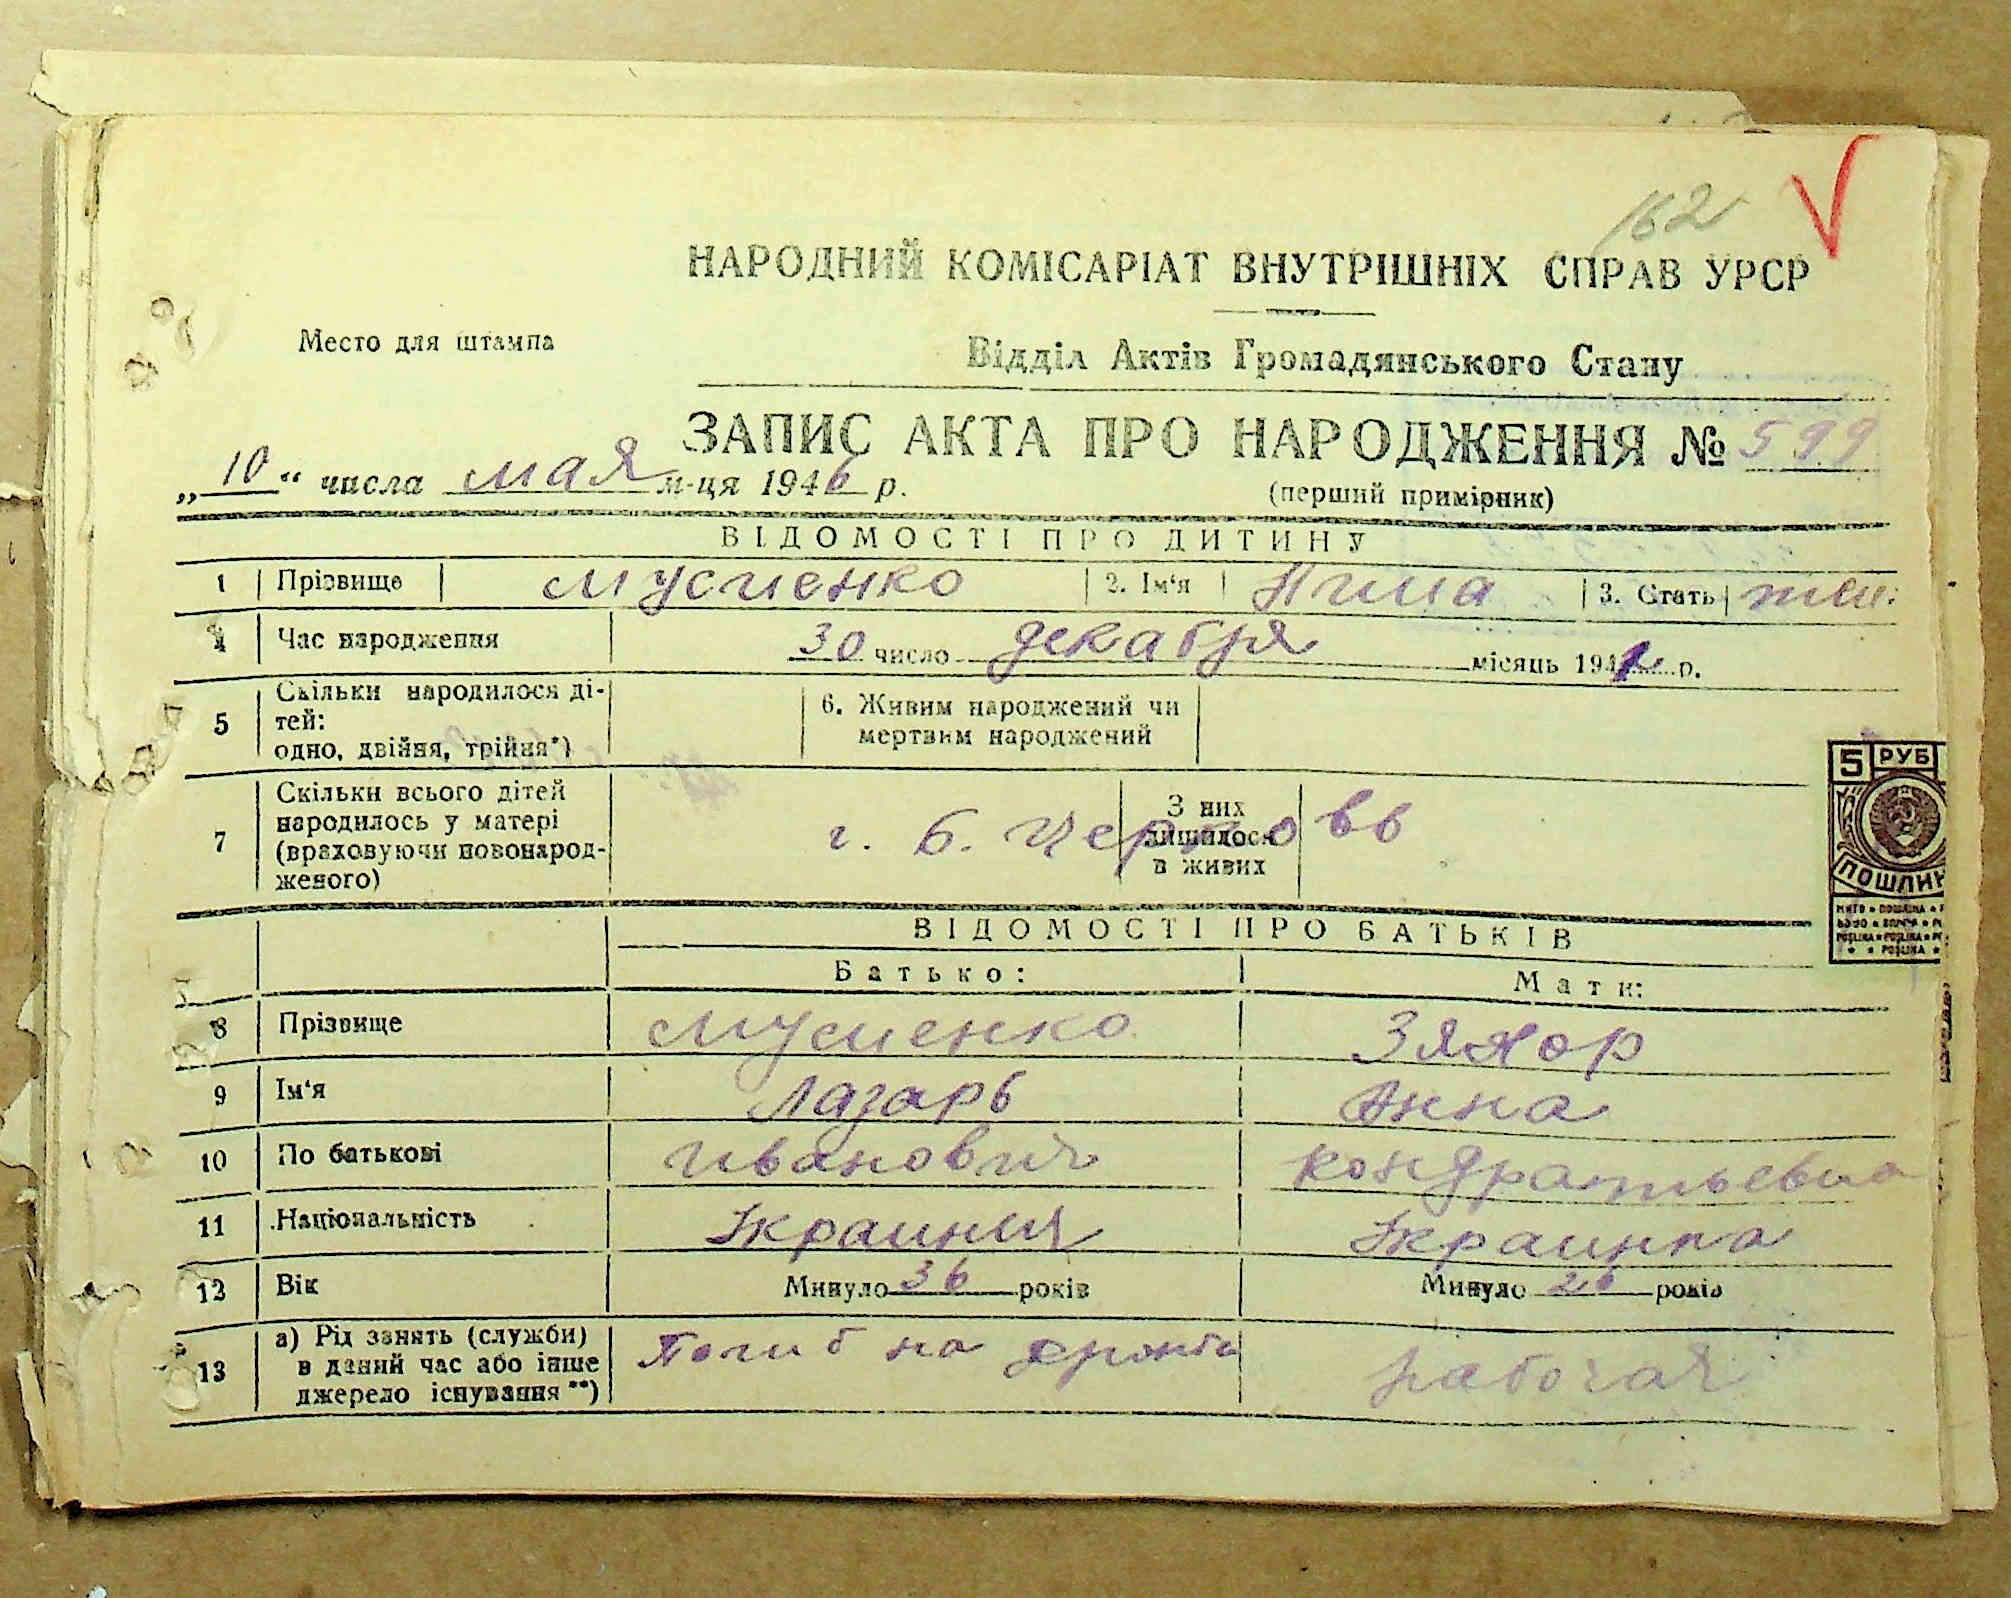 162
НАРОДНИЙ КОМІСАРІАТ ВНУТРІШНІХ СПРАВ УРСР
Место для штампа
Відділ Актів Громадянського Стану
ЗАПИС АКТА ПРО НАРОДЖЕННЯ № 599
„10“ числа мая м-ця 1946 р.
(перший примірник)
ВІДОМОСТІ ПРО ДИТИНУ
1 Прізвище Мусиенко 2. Ім‘я Нина 3. Стать жен.
4 Час народження 30 число декабря місяць 1941 р.
5 Скільки народилося ді-
тей:
одно, двійня, трійня*)
6. Живим народжений чи
мертвим народжений
7 Скільки всього дітей
народилось у матері
(враховуючи новонарод-
женого)
г. Б. Церковь
З них
лишилося
в живих
5 РУБ
ПОШЛИН
ВІДОМОСТІ ПРО БАТЬКІВ
Батько: Мати:
8 Прізвище Мусиенко Зяхор
9 Ім‘я Лазарь Анна
10 По батькові Иванович Кондратьевна
11 Національність Украинец Украинка
12 Вік Минуло 36 років Минуло 26 років
13 а) Рід занять (служби)
в даний час або інше
джерело існування **)
Погиб на фронте рабочая